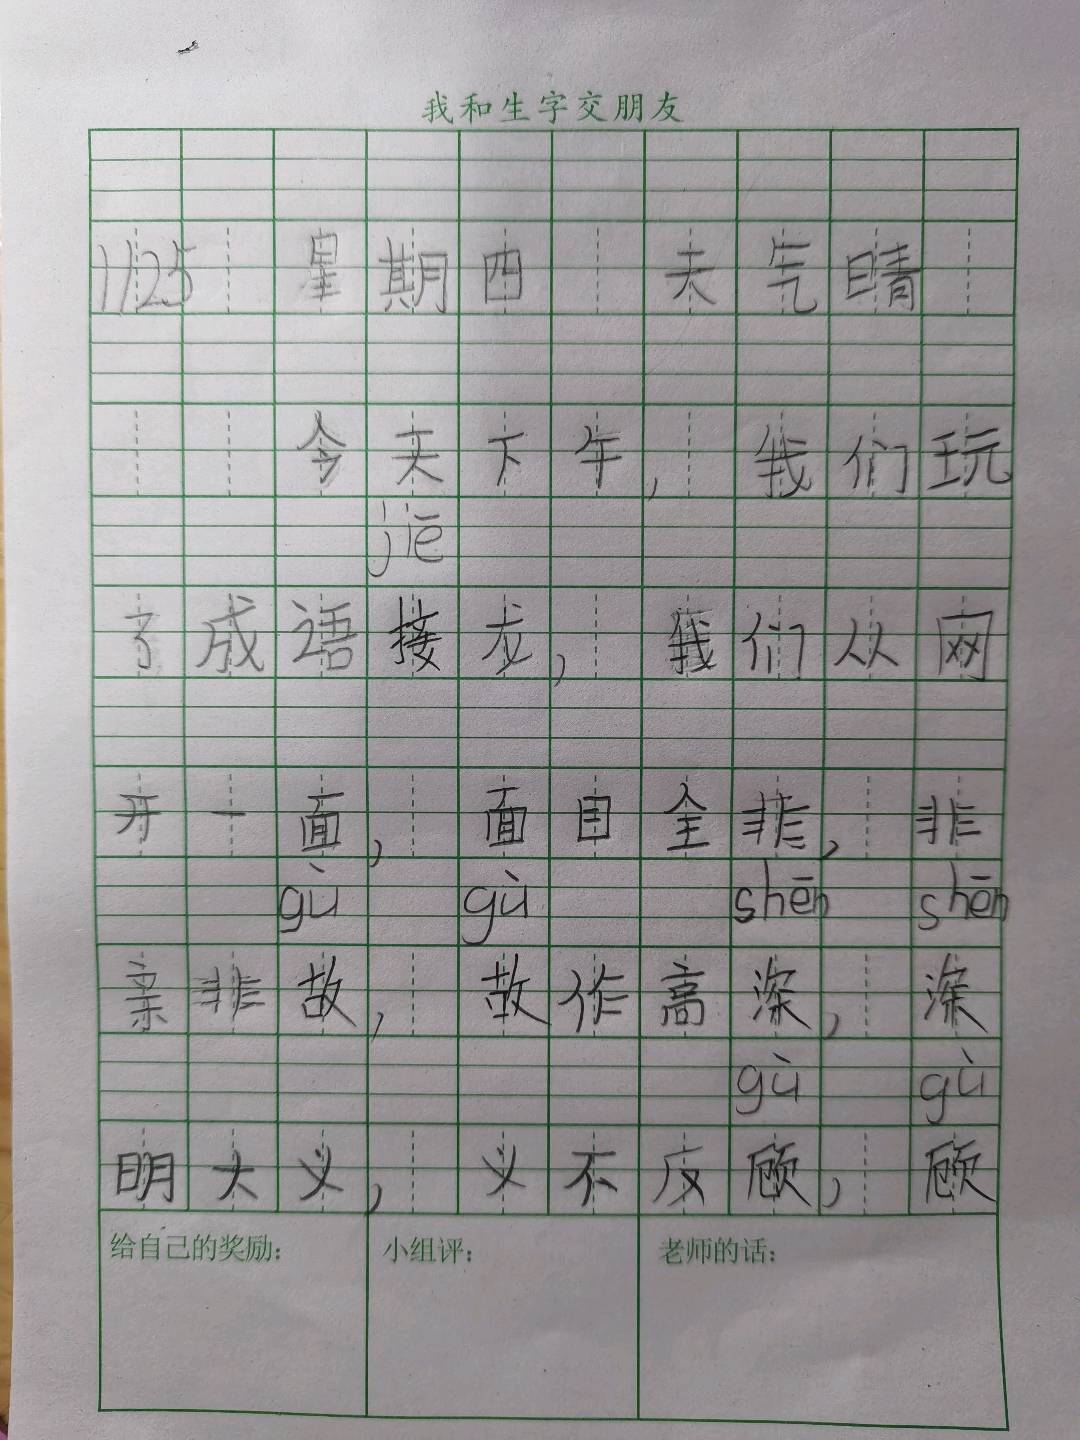 我和生字交朋友
1125 星期四 天气晴
今天下午，我们玩
jiē
了成语接龙，我们从网
开一面，面目全非，非
gù gù shēn shēn
亲非故，故作高深，深
gù gù
明大义，义不反顾，顾
给自己的奖励： 小组评： 老师的话：